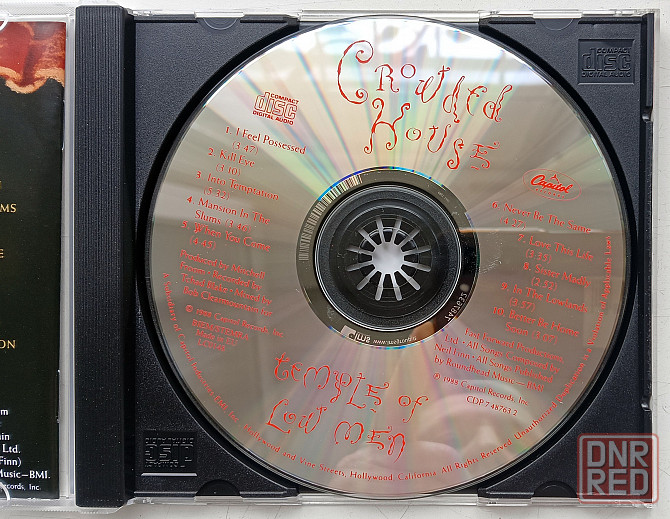 MS
E
ON
m
in
Ltd.
Finn)
Music—BMI.
Records, Inc.
COMPACT
disc
DIGITAL AUDIO
Crowded
House
COMPACT
disc
DIGITAL AUDIO
1. I Feel Possessed
(3:47)
2. Kill Eye
(3:10)
3. Into Temptation
4. Mansion In The
Slums (3:46)
5. When You Come
(4:45)
Produced by Mitchell
Froom • Recorded by
Tchad Blake • Mixed by
Bob Clearmountain
℗ 1988 Capitol Records, Inc.
Capitol
6. Never Be The Same
7. Love This Life
(3:35)
8. Sister Madly
(2:52)
9. In The Lowlands
10. Better Be Home
Soon (3:07)
All Songs Composed by
Neil Finn • All Songs Published
by Roundhead Music—BMI.
℗ 1988 Capitol Records, Inc.
CDP 7 48763 2
temple of
Low Men
Hollywood and Vine Streets, Hollywood, California. All Rights Reserved. Unauthorized
DNR
RED